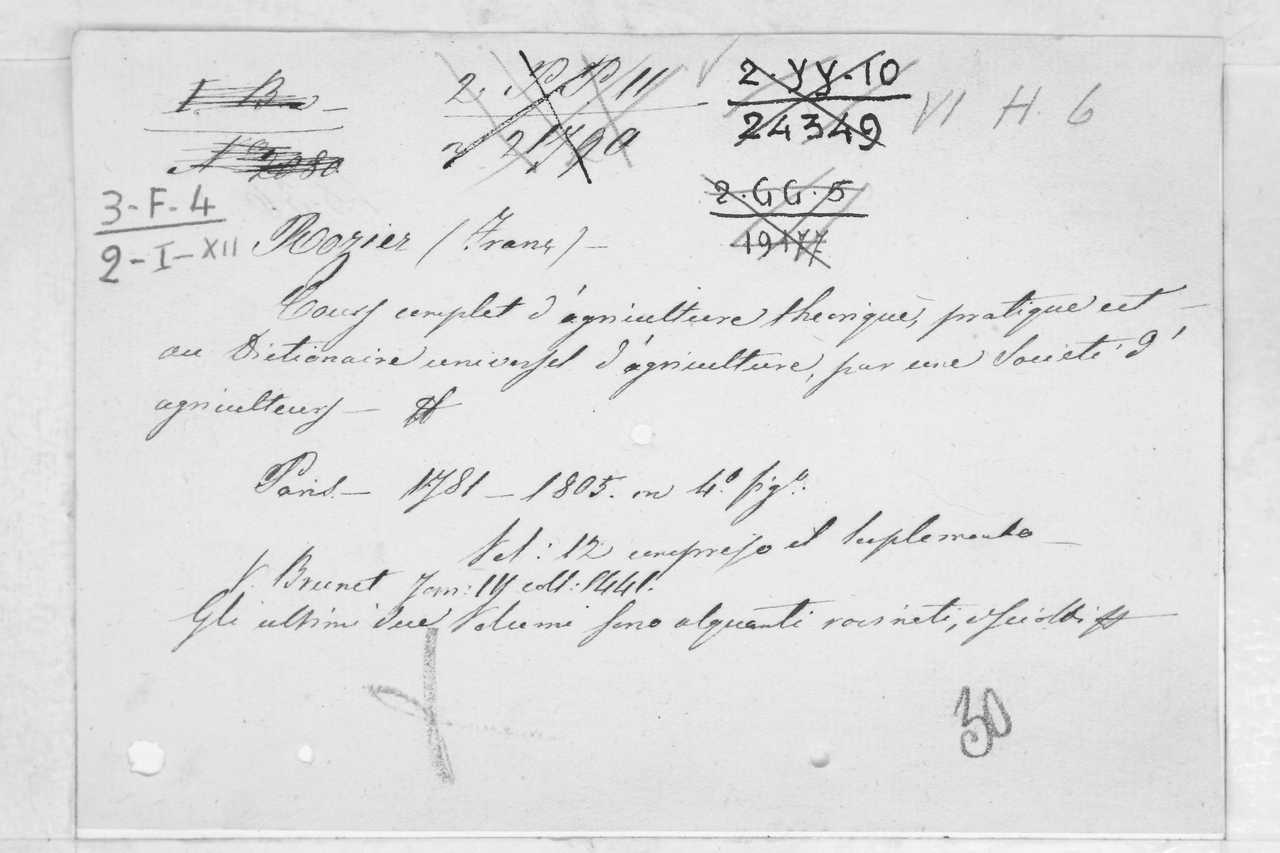 2. PP 11
2 · YY · 10
VI H. 6
24349
2 · GG · 5
19177
3 - F - 4
2 - I - XII
Rozier (Franç) —
Cours complet d'agriculture theorique, pratique ect —
ou Dictionaire universel d'agriculture, par une Societé d'
agriculteurs —
Paris — 1781 — 1805. in 4.º fig.º
Vol: 12 compreso il Suplemento —
V. Brunet Tom: IV coll: 1441.
Gli ultimi due Volumi sono alquanti rovineti, e sciolti
30